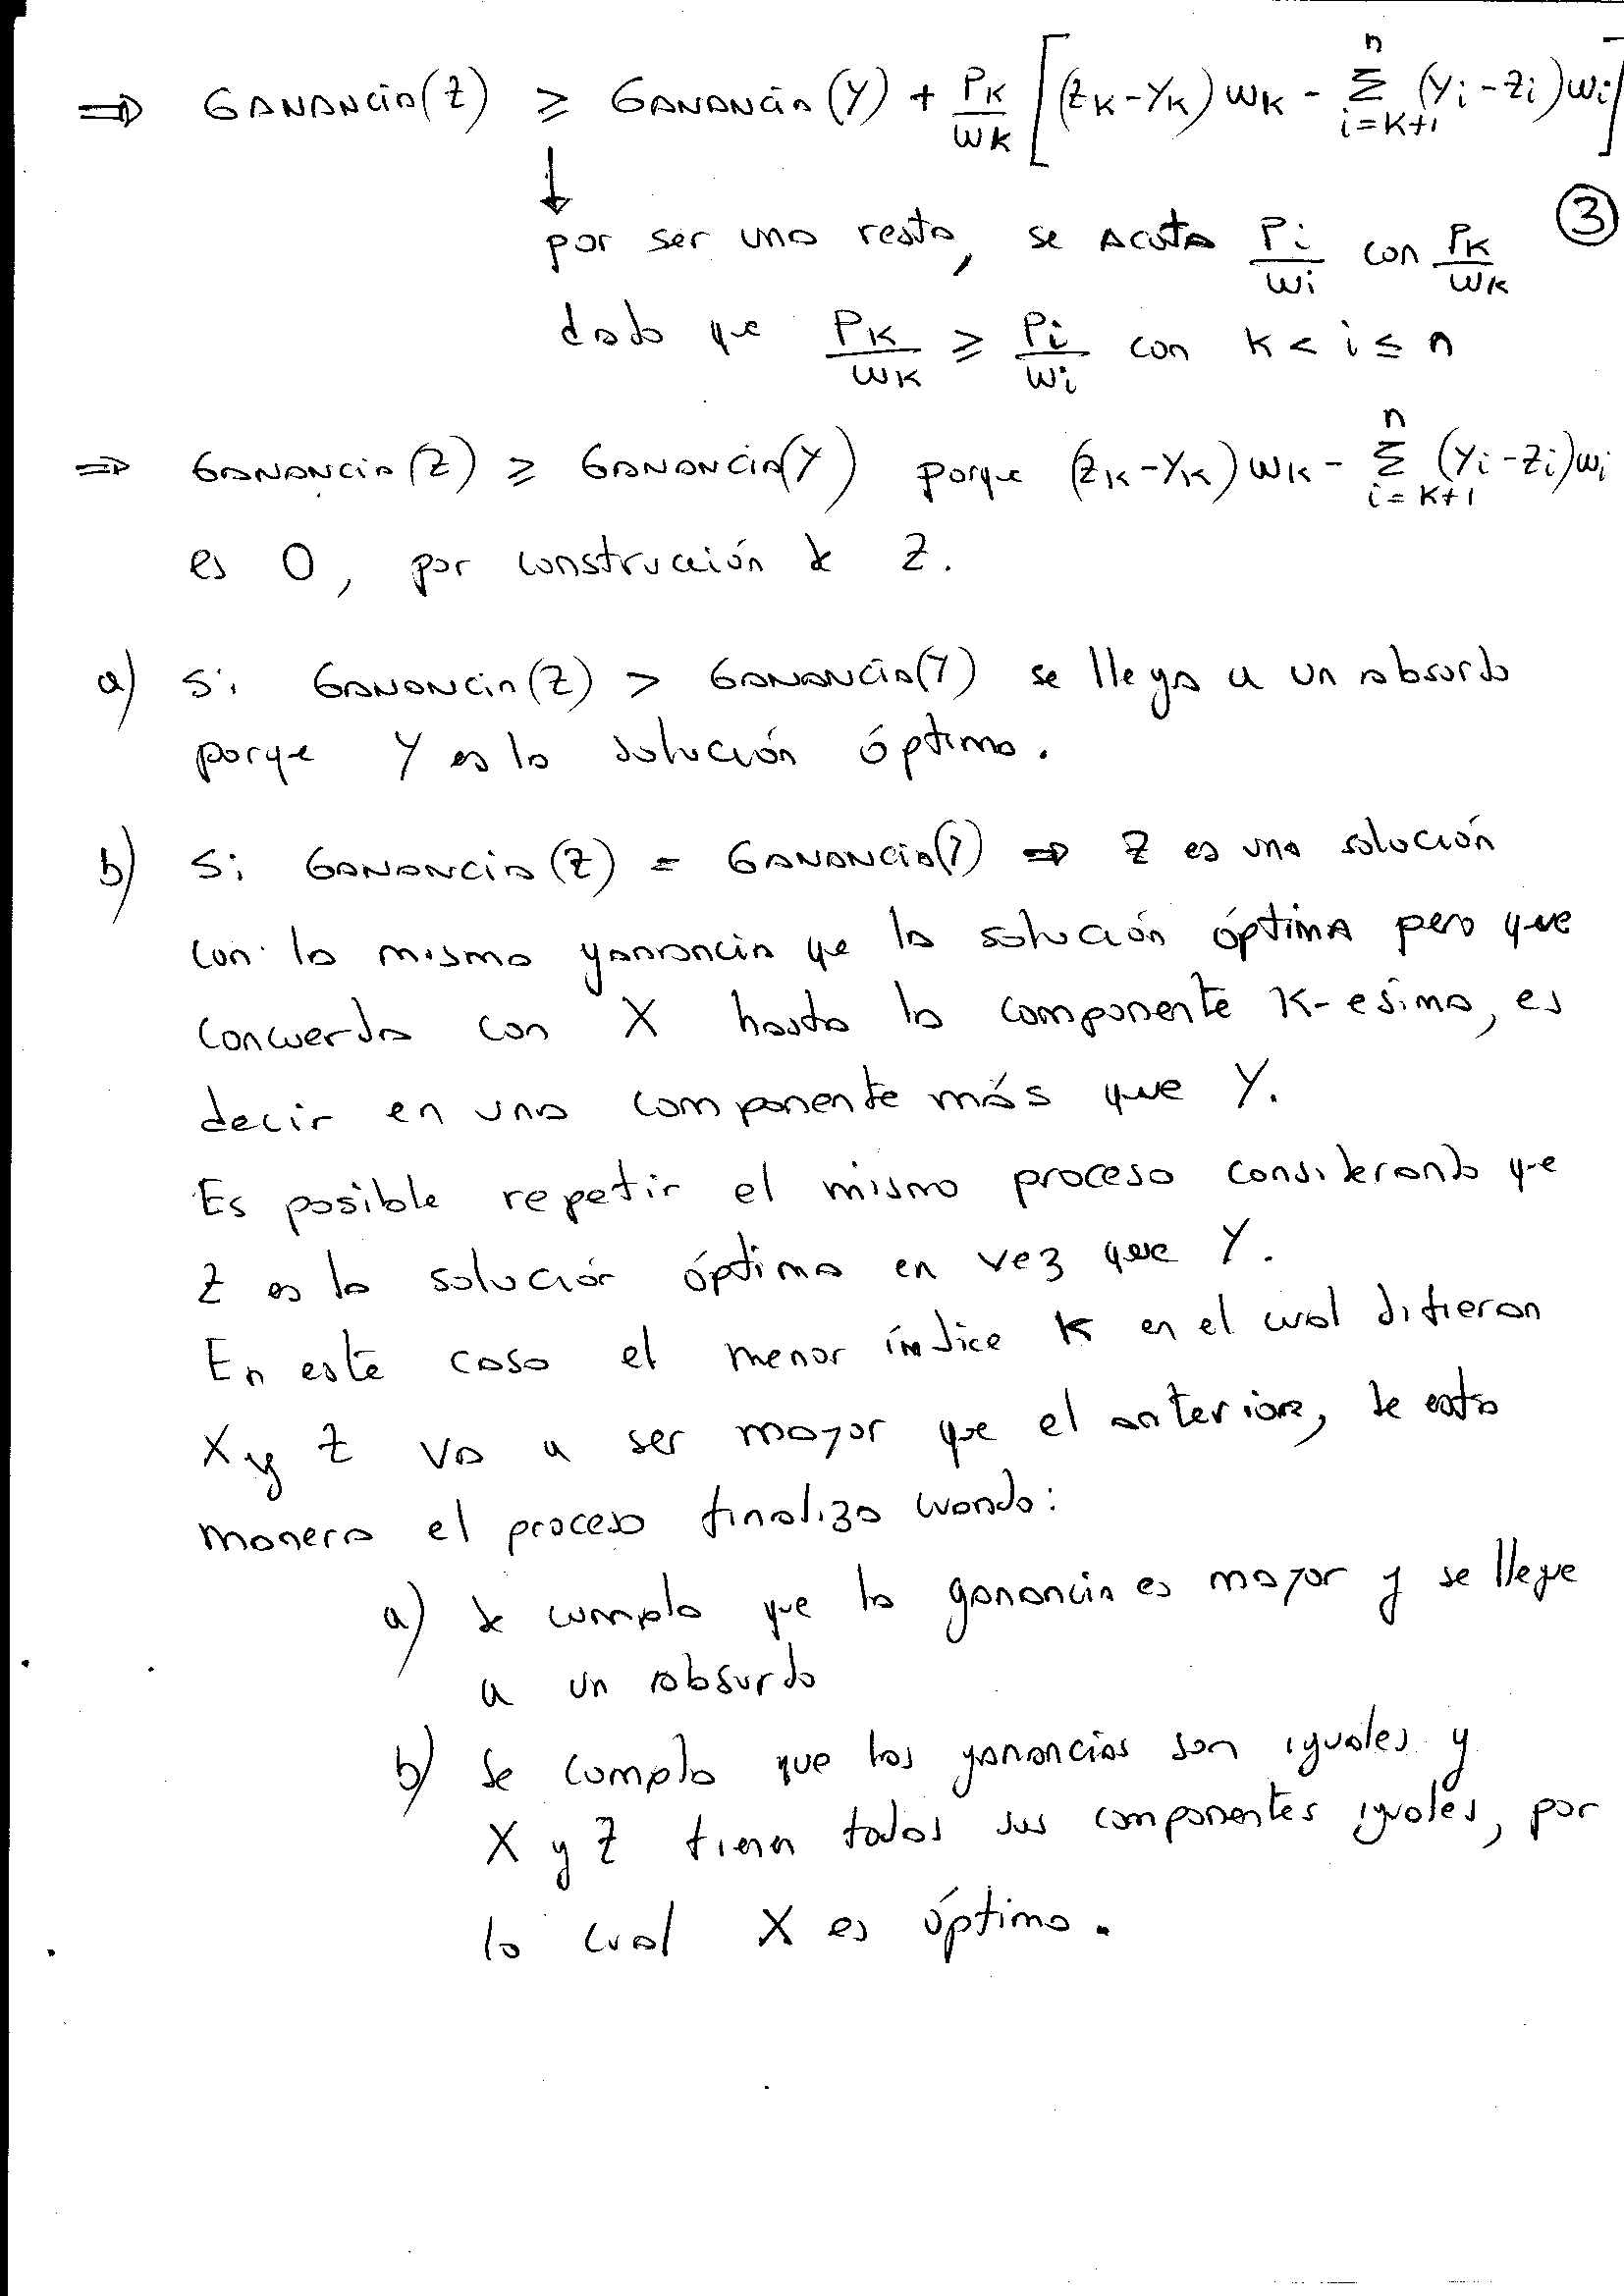 ⇒ GANANCIA(Z) ≥ GANANCIA(Y) + PK/WK [(ZK-YK) WK - Σ_{i=K+1}^{n} (Yi-Zi)Wi]
↓
③
por ser una resta, se ACOTA Pi/Wi con PK/WK
dado que PK/WK ≥ Pi/Wi con K < i ≤ n
⇒ GANANCIA(Z) ≥ GANANCIA(Y) porque (ZK-YK) WK - Σ_{i=K+1}^{n} (Yi-Zi)Wi
es 0, por construcción de Z.
a) Si GANANCIA(Z) > GANANCIA(Y) se llega a un absurdo
porque Y es la solución óptima.
b) Si GANANCIA(Z) = GANANCIA(Y) ⇒ Z es una solución
con la misma ganancia que la solución óptima pero que
concuerda con X hasta la componente K-esima, es
decir en una componente más que Y.
Es posible repetir el mismo proceso considerando que
Z es la solución óptima en vez que Y.
En este caso el menor índice K en el cual difieran
X y Z va a ser mayor que el anterior, de esta
manera el proceso finaliza cuando:
a) se cumpla que la ganancia es mayor y se llegue
a un absurdo
b) se cumpla que las ganancias son iguales y
X y Z tienen todas sus componentes iguales, por
lo cual X es óptima.